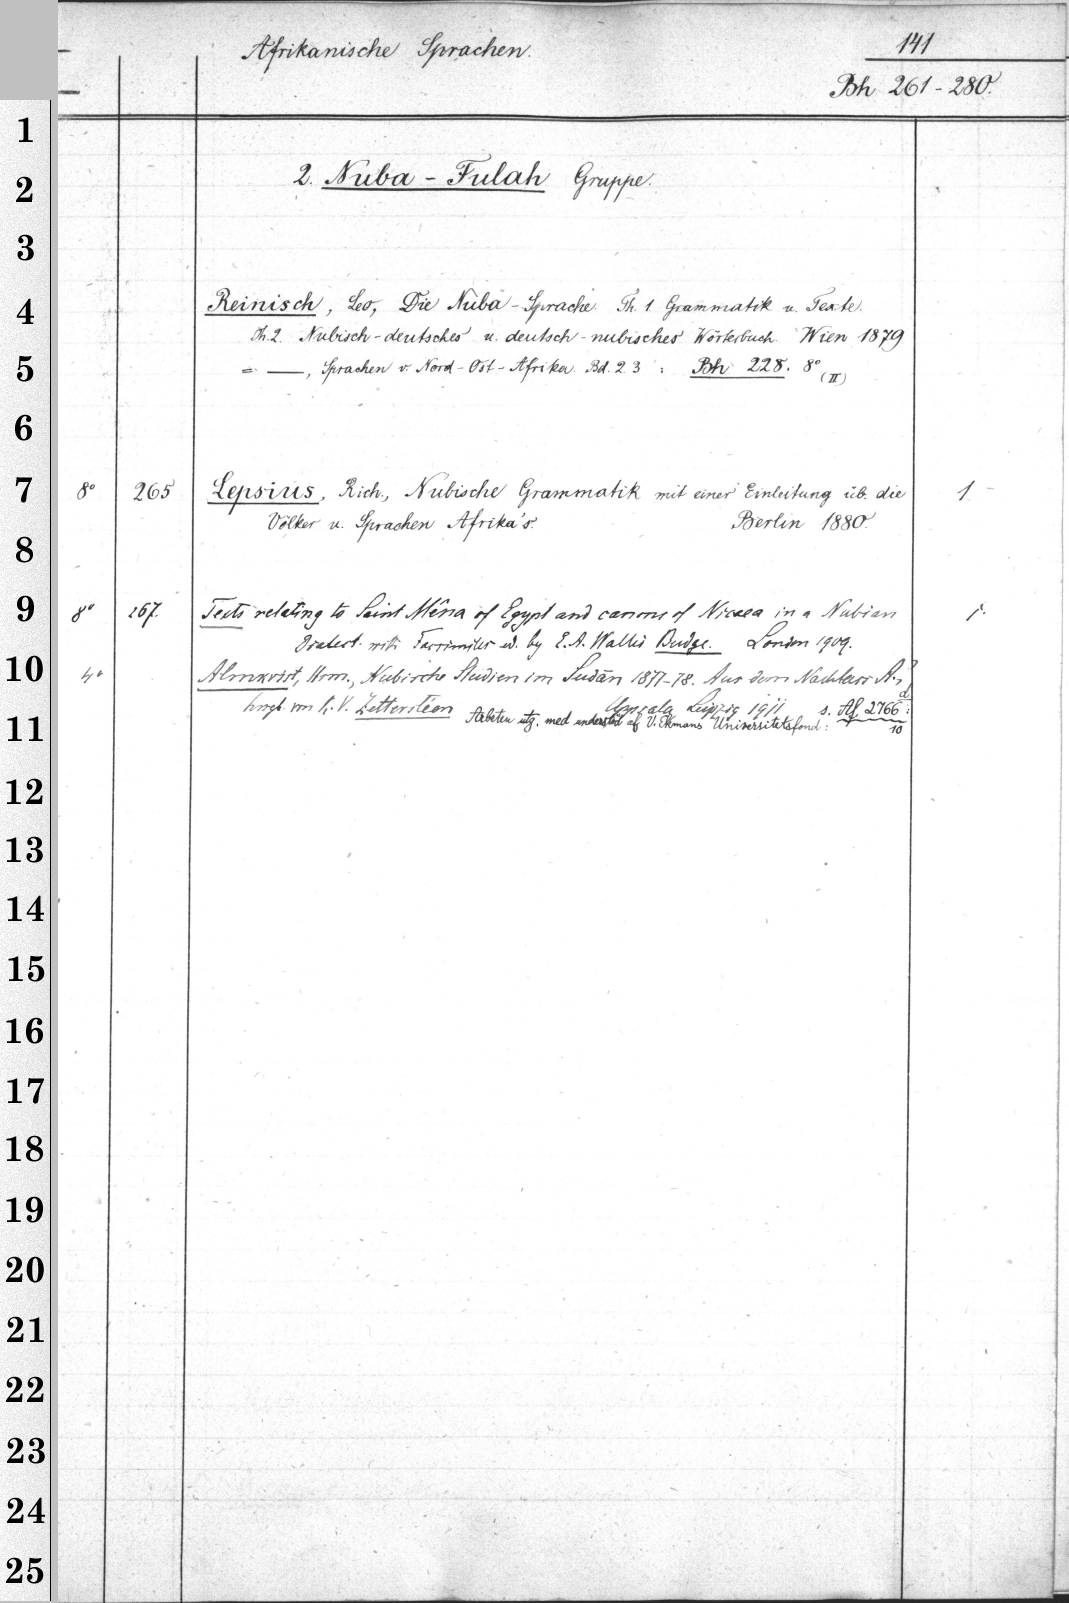 Afrikanische Sprachen.
141
Bh 261-280.
2. Nuba-Fulah Gruppe.
Reinisch, Leo, Die Nuba-Sprache. Th. 1 Grammatik u. Texte.
Th. 2. Nubisch-deutsches u. deutsch-nubisches Wörterbuch. Wien 1879
= —, Sprachen v. Nord-Ost-Afrika. Bd. 2. 3 : Bh 228. 8° (II)
8° 265 Lepsius, Rich., Nubische Grammatik mit einer Einleitung üb. die 1
Völker u. Sprachen Afrika's. Berlin 1880.
8° 267. Texts relating to Saint Mêna of Egypt and canons of Nicaea in a Nubian 1.
Dialect. with Facsimiles ed. by E. A. Wallis Budge. London 1909.
4° Almkvist, Herm., Nubische Studien im Sudān 1877-78. Aus dem Nachlass A.'s
hrsg. von K. V. Zetterstéen Upsala Leipzig 1911 s. Af. 2766 d:
Arbeten utg. med understöd af V. Ekmans Universitetsfond: 10
1
2
3
4
5
6
7
8
9
10
11
12
13
14
15
16
17
18
19
20
21
22
23
24
25